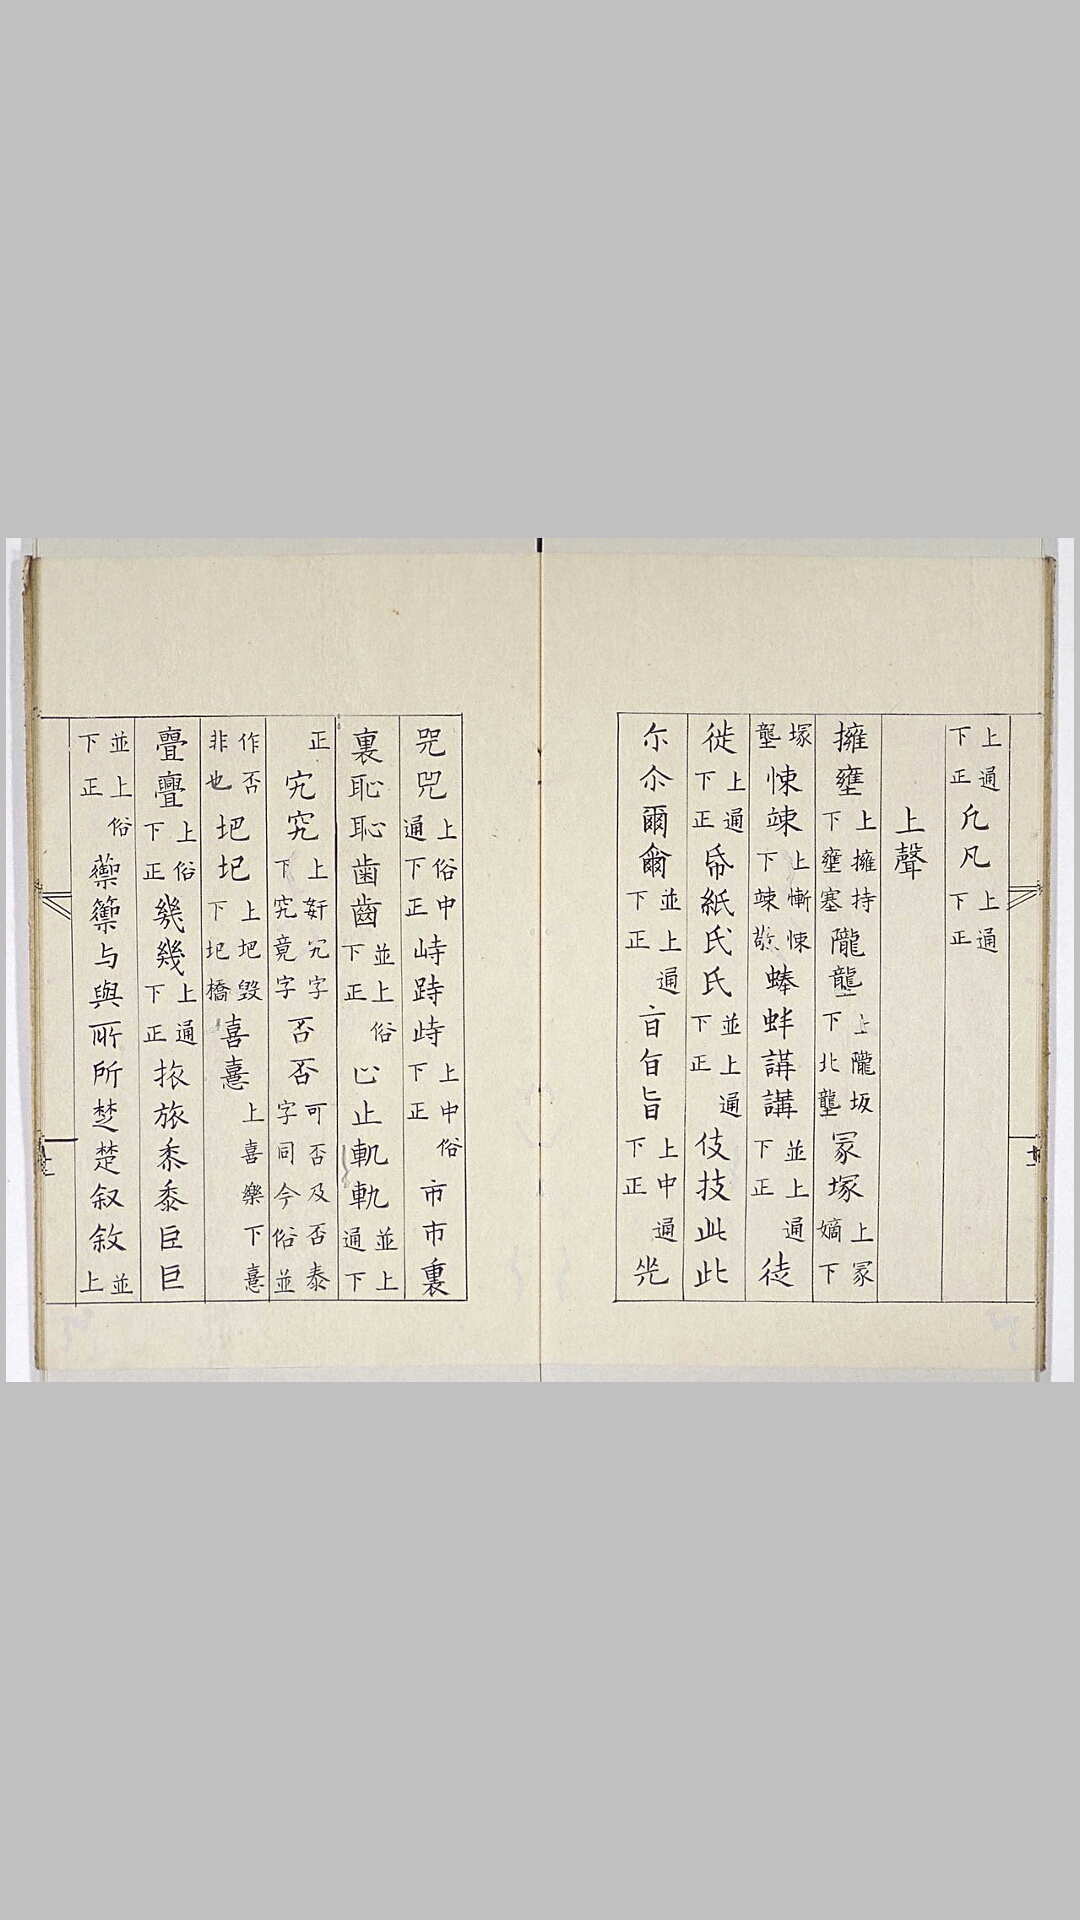 上通下正凣凡上通下正
上聲
擁壅上擁持下壅塞隴壟上隴坂下北壟冡塚嫡上冡下
塚壟悚竦上慚悚下竦蜯蚌講講並上通下正徒
徙上通下正帋紙氏氏並上通下正伎技此此
尓尒爾爾並上通下正旨旨上中通下正
咒兕上俗中通下正峙跱歭上中俗下正市市裏
裏恥恥齒齒並上俗下正止止軌軌並上通下
正宄究上姧宄字下究竟字否否可否及否泰字同今俗並
作否非也圯圮上圯毀下圮橋喜憙上喜樂下憙
亹上俗下正幾幾上通下正旅旅黍黍巨巨
並上俗下正蘌籞与與所所楚楚叙敘並上